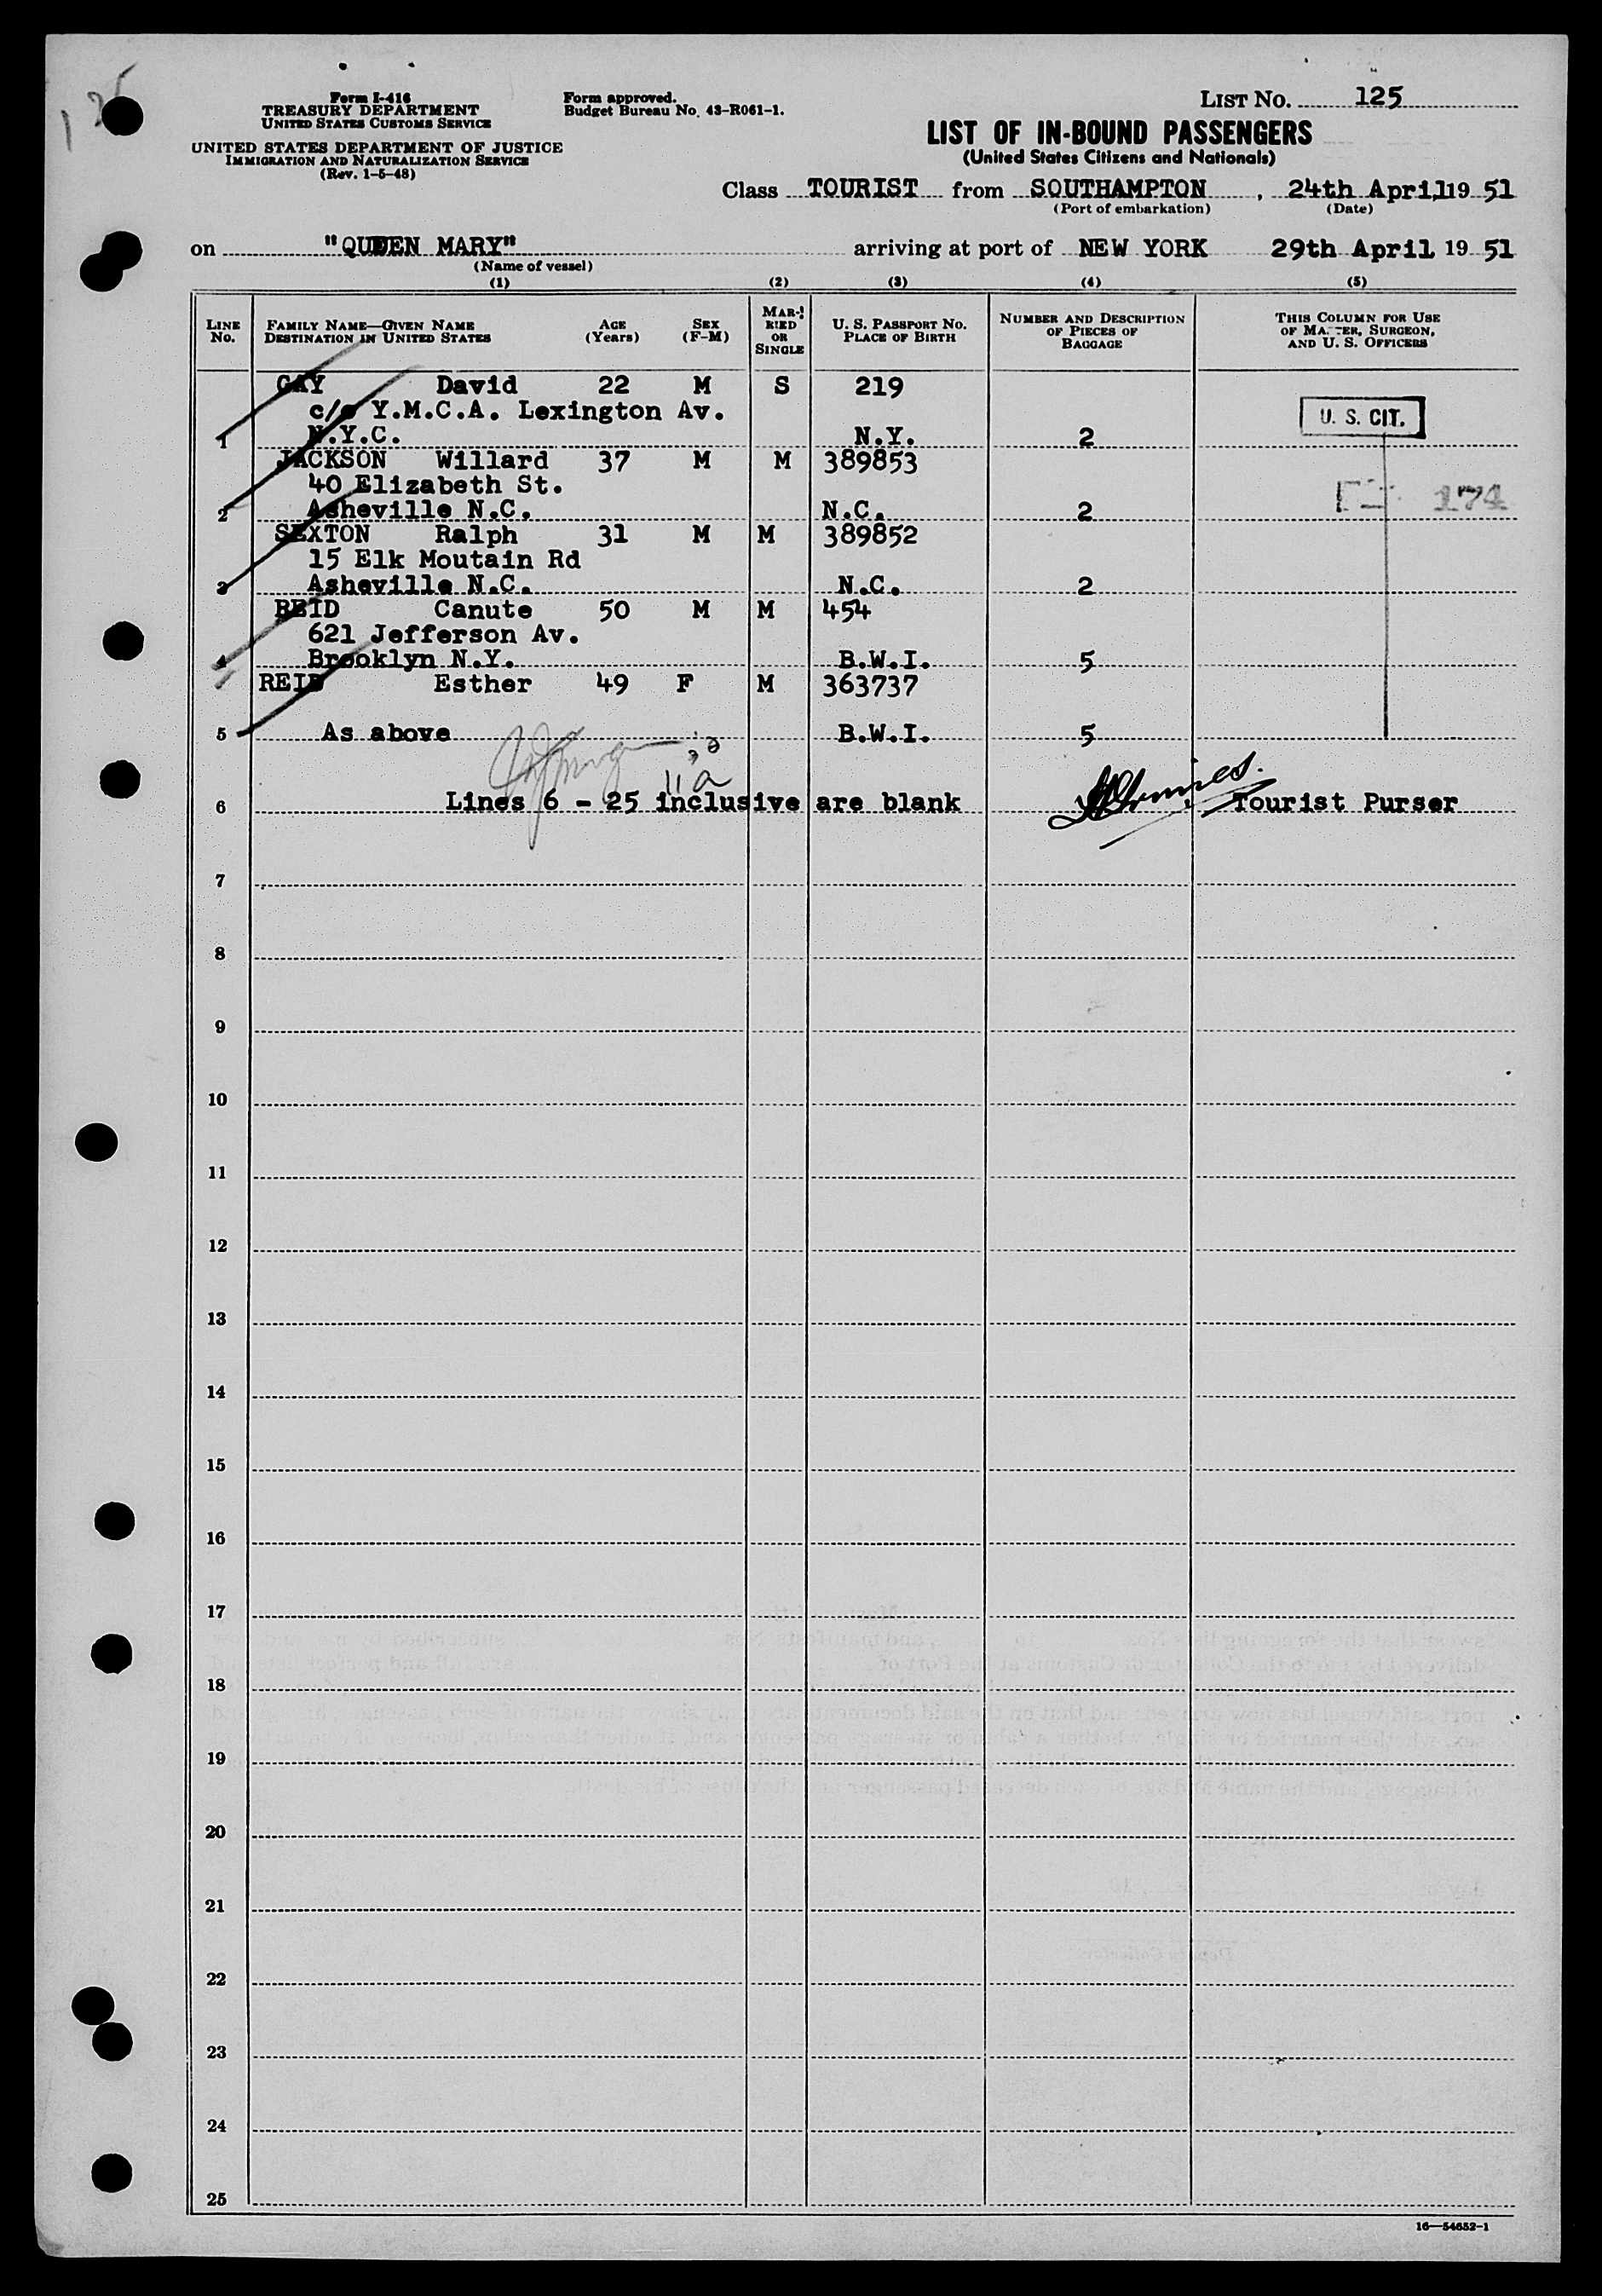 125
Form I-416
TREASURY DEPARTMENT
UNITED STATES CUSTOMS SERVICE
UNITED STATES DEPARTMENT OF JUSTICE
IMMIGRATION AND NATURALIZATION SERVICE
(Rev. 1-5-48)
Form approved.
Budget Bureau No. 43-R061-1.
LIST NO. 125
LIST OF IN-BOUND PASSENGERS
(United States Citizens and Nationals)
Class TOURIST from SOUTHAMPTON, 24th April, 19 51
(Port of embarkation) (Date)
on "QUEEN MARY" arriving at port of NEW YORK 29th April 19 51
(Name of vessel)
(1) (2) (3) (4) (5)
LINE NO. FAMILY NAME—GIVEN NAME DESTINATION IN UNITED STATES AGE (Years) SEX (F-M) MARRIED OR SINGLE U. S. PASSPORT NO. PLACE OF BIRTH NUMBER AND DESCRIPTION OF PIECES OF BAGGAGE THIS COLUMN FOR USE OF MASTER, SURGEON, AND U. S. OFFICERS
GAY David 22 M S 219
c/o Y.M.C.A. Lexington Av. U. S. CIT.
1 N.Y.C. N.Y. 2
JACKSON Willard 37 M M 389853
40 Elizabeth St. 174
2 Asheville N.C. N.C. 2
SEXTON Ralph 31 M M 389852
15 Elk Moutain Rd
3 Asheville N.C. N.C. 2
REID Canute 50 M M 454
621 Jefferson Av.
4 Brooklyn N.Y. B.W.I. 5
REID Esther 49 F M 363737
5 As above B.W.I. 5
11 a
6 Lines 6 - 25 inclusive are blank Tourist Purser
7
8
9
10
11
12
13
14
15
16
17
18
19
20
21
22
23
24
25
16—54652-1